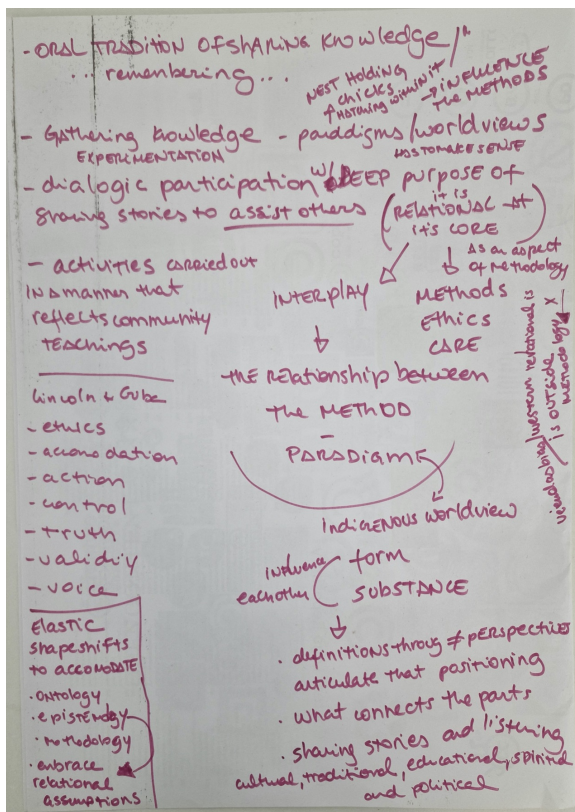 - ORAL TRADITION OF SHARING KNOWLEDGE /
.. remembering...
NEST HOLDING
chicks
HATCHING WITHIN IT
→ INFLUENCE
THE METHODS
- Gathering Knowledge
EXPERIMENTATION
- paradigms/worldviews
HAS TO MAKE SENSE
- dialogic participation w/ DEEP purpose of
sharing stories to assist others
(it is
RELATIONAL AT
it's CORE)
- activities carried out
IN a manner that
reflects community
TEACHINGS
INTERPLAY
As an aspect
of Methodology
METHODS
ETHICS
CARE
THE RELAtionship between
The METHOD
-
PARADIGME
western relational is
is outside
methodology X
Lincoln & Guba
- ethics
- accomodation
- action
- control
- truth
- validity
- voice
INDIGENOUS worldview
INFLUENCE
each other
form
SUBSTANCE
ELASTIC
shapeshifts
to accomodate
. ONTOLOGY
. epistemology
. methodology
. embrace
relational
assumptions
. definitions throug ≠ perspectives
articulate that positioning
. what connects the parts
. sharing stories and listening
cultural, traditional, educational, spiritual
and political